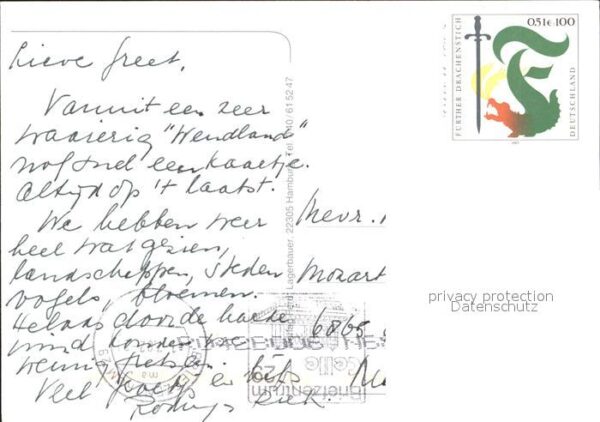 Lieve Greet,
Vanuit een zeer
waaierig "Wendland"
nog snel een kaartje.
Altijd op 't laatst.
We hebben weer
heel wat gezien,
landschappen, steden
vogels, bloemen.
Helaas door de harde
wind konden we
weinig fietsen.
Veel liefs
Mevr.
Mozart
6865
Lagerbauer, 22305 Hamburg, Tel. 040/61 52 47
0,51€ 100
FURTHER DRACHENSTICH
DEUTSCHLAND
Celle
Briefzentrum
29
privacy protection
Datenschutz